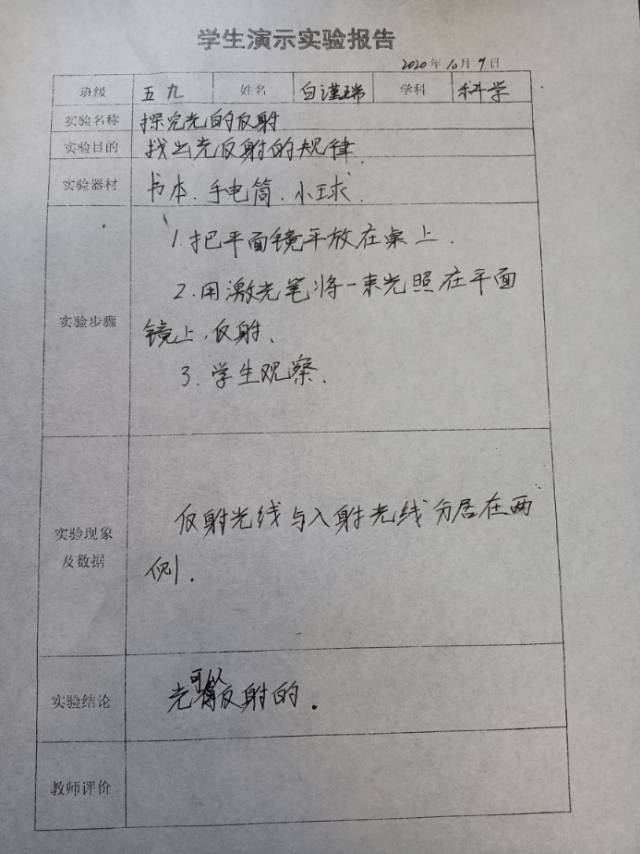 学生演示实验报告
2020年10月9日
班级 五九 姓名 白瑾瑞 学科 科学
实验名称 探究光的反射
实验目的 找出光反射的规律.
实验器材 书本.手电筒.小球.
实验步骤
1.把平面镜平放在桌上.
2.用激光笔将一束光照在平面
镜上,反射、
3.学生观察.
实验现象
及数据
反射光线与入射光线分居在两
侧.
实验结论 光可以反射的.
教师评价